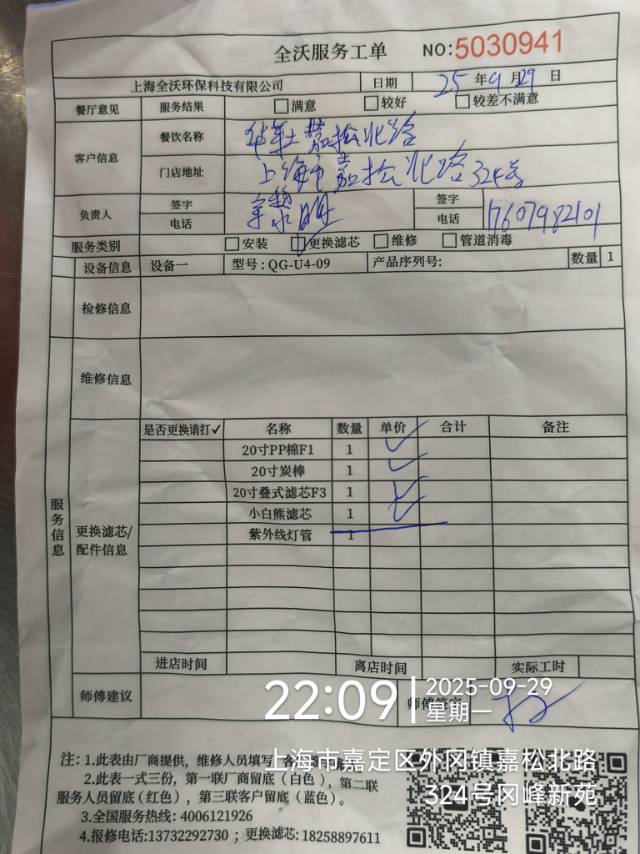 全沃服务工单 NO:5030941
上海全沃环保科技有限公司 日期 25年9月29日
餐厅意见 服务结果 满意 较好 较差不满意
客户信息 餐饮名称 华莱士嘉松北路
门店地址 上海市嘉松北路324号
负责人 签字 签字
电话 电话 17607982101
服务类别 安装 更换滤芯 维修 管道消毒
设备信息 设备一 型号:QG-U4-09 产品序列号: 数量 1
检修信息
维修信息
服务信息
更换滤芯/配件信息
是否更换请打✓ 名称 数量 单价 合计 备注
20寸PP棉F1 1 ✓
20寸炭棒 1 ✓
20寸叠式滤芯F3 1 ✓
小白熊滤芯 1 ✓
紫外线灯管 1
进店时间 离店时间 实际工时
师傅建议 师傅签字
22:09 2025-09-29
星期一
上海市嘉定区外冈镇嘉松北路
324号冈峰新苑
注:1.此表由厂商提供，维修人员填写
2.此表一式三份，第一联厂商留底(白色)，第二联
服务人员留底(红色)，第三联客户留底(蓝色)。
3.全国服务热线:4006121926
4.报修电话:13732292730；更换滤芯:18258897611